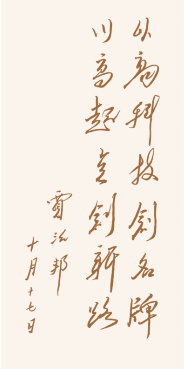 以高科技创名牌
以高起点创新路
贾治邦
十月十七日